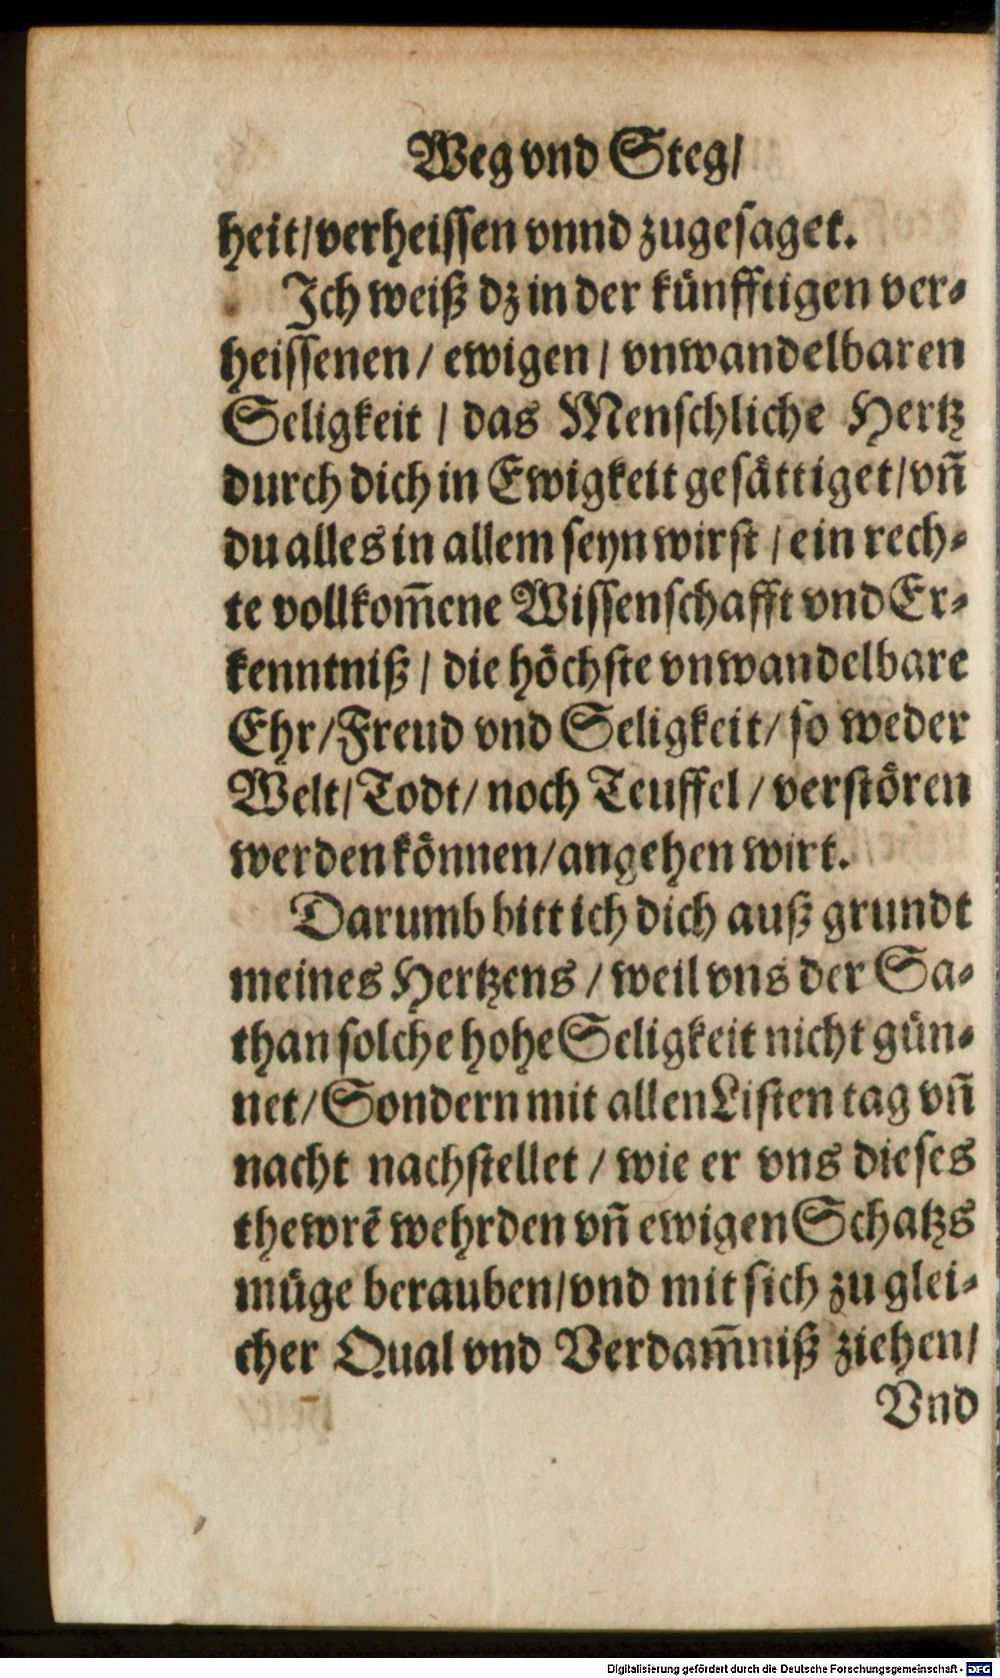 Weg vnd Steg/
heit/verheissen vnnd zugesaget.
Ich weiß dz in der künfftigen ver-
heissenen/ ewigen/ vnwandelbaren
Seligkeit / das Menschliche Hertz
durch dich in Ewigkeit gesättiget/vñ
du alles in allem seyn wirst / ein rech-
te vollkom̃ene Wissenschafft vnd Er-
kenntniß / die höchste vnwandelbare
Ehr/Freud vnd Seligkeit/ so weder
Welt/Todt/ noch Teuffel / verstören
werden können/angehen wirt.
Darumb bitt ich dich auß grundt
meines Hertzens / weil vns der Sa-
than solche hohe Seligkeit nicht gün-
net/Sondern mit allen Listen tag vñ
nacht nachstellet / wie er vns dieses
thewrẽ wehrden vñ ewigen Schatzs
müge berauben/vnd mit sich zu glei-
cher Qual vnd Verdam̃niß ziehen/
Vnd
Digitalisierung gefördert durch die Deutsche Forschungsgemeinschaft - DFG